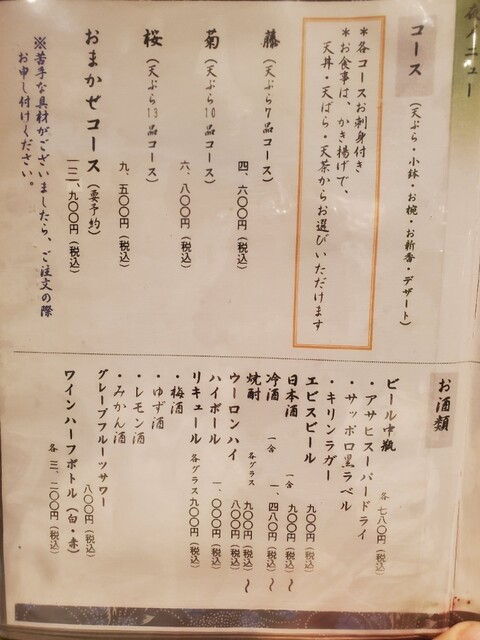 夜メニュー
コース
(天ぷら・小鉢・お椀・お新香・デザート)
*各コースお刺身付き
*お食事は、かき揚げで、
天丼・天ばら・天茶からお選びいただけます
藤(天ぷら7品コース)
四、六〇〇円(税込)
菊(天ぷら10品コース)
六、八〇〇円(税込)
桜(天ぷら13品コース)
九、五〇〇円(税込)
おまかせコース(要予約)
一二、九〇〇円(税込)
※苦手な具材がございましたら、ご注文の際
お申し付けください。
お酒類
ビール中瓶 各 七八〇円(税込)
・アサヒスーパードライ
・サッポロ黒ラベル
・キリンラガー
エビスビール 九〇〇円(税込)
日本酒 一合 九〇〇円(税込)〜
冷酒 一合 一、四八〇円(税込)〜
焼酎 各グラス 九〇〇円(税込)〜
ウーロンハイ 八〇〇円(税込)
ハイボール 一、〇〇〇円(税込)
リキュール 各グラス九〇〇円(税込)
・梅酒
・ゆず酒
・レモン酒
・みかん酒
グレープフルーツサワー
八〇〇円(税込)
ワインハーフボトル(白・赤)
各 三、二〇〇円(税込)